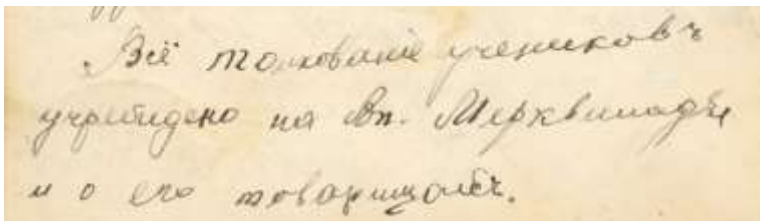 Всё толкованіе учениковъ
учреждено на Вл. Мерквиладзе
и о его товарищахъ.